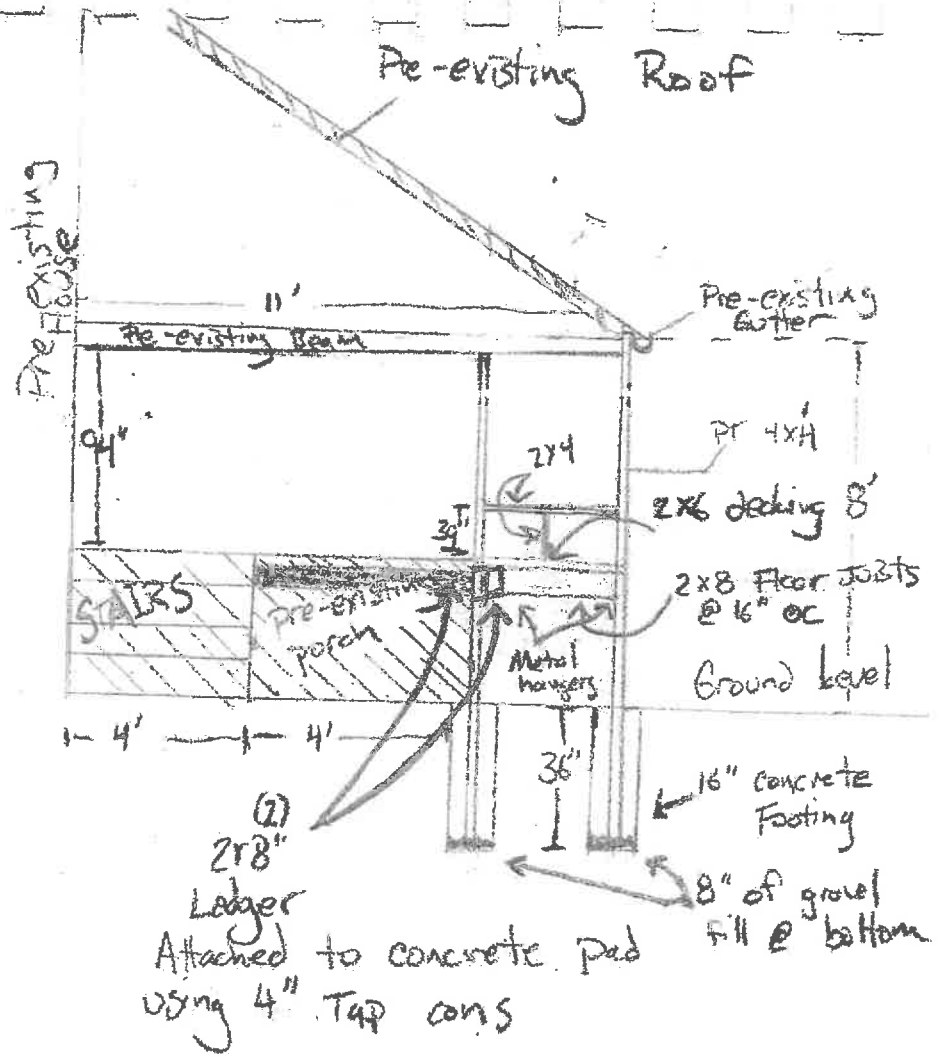 Pre-existing Roof
Pre-existing
House
11'
Pre-existing
Gutter
Pre-existing Beam
PT 4x4
2x4
2x6 decking
8'
STAIRS
pre-existing
porch
2x8 Floor Joists
@ 16" OC
Metal
hangers
Ground Level
4'
4'
36"
16" concrete
Footing
(2)
2x8"
Ledger
Attached to concrete pad
using 4" Tap cons
8" of gravel
fill @ bottom